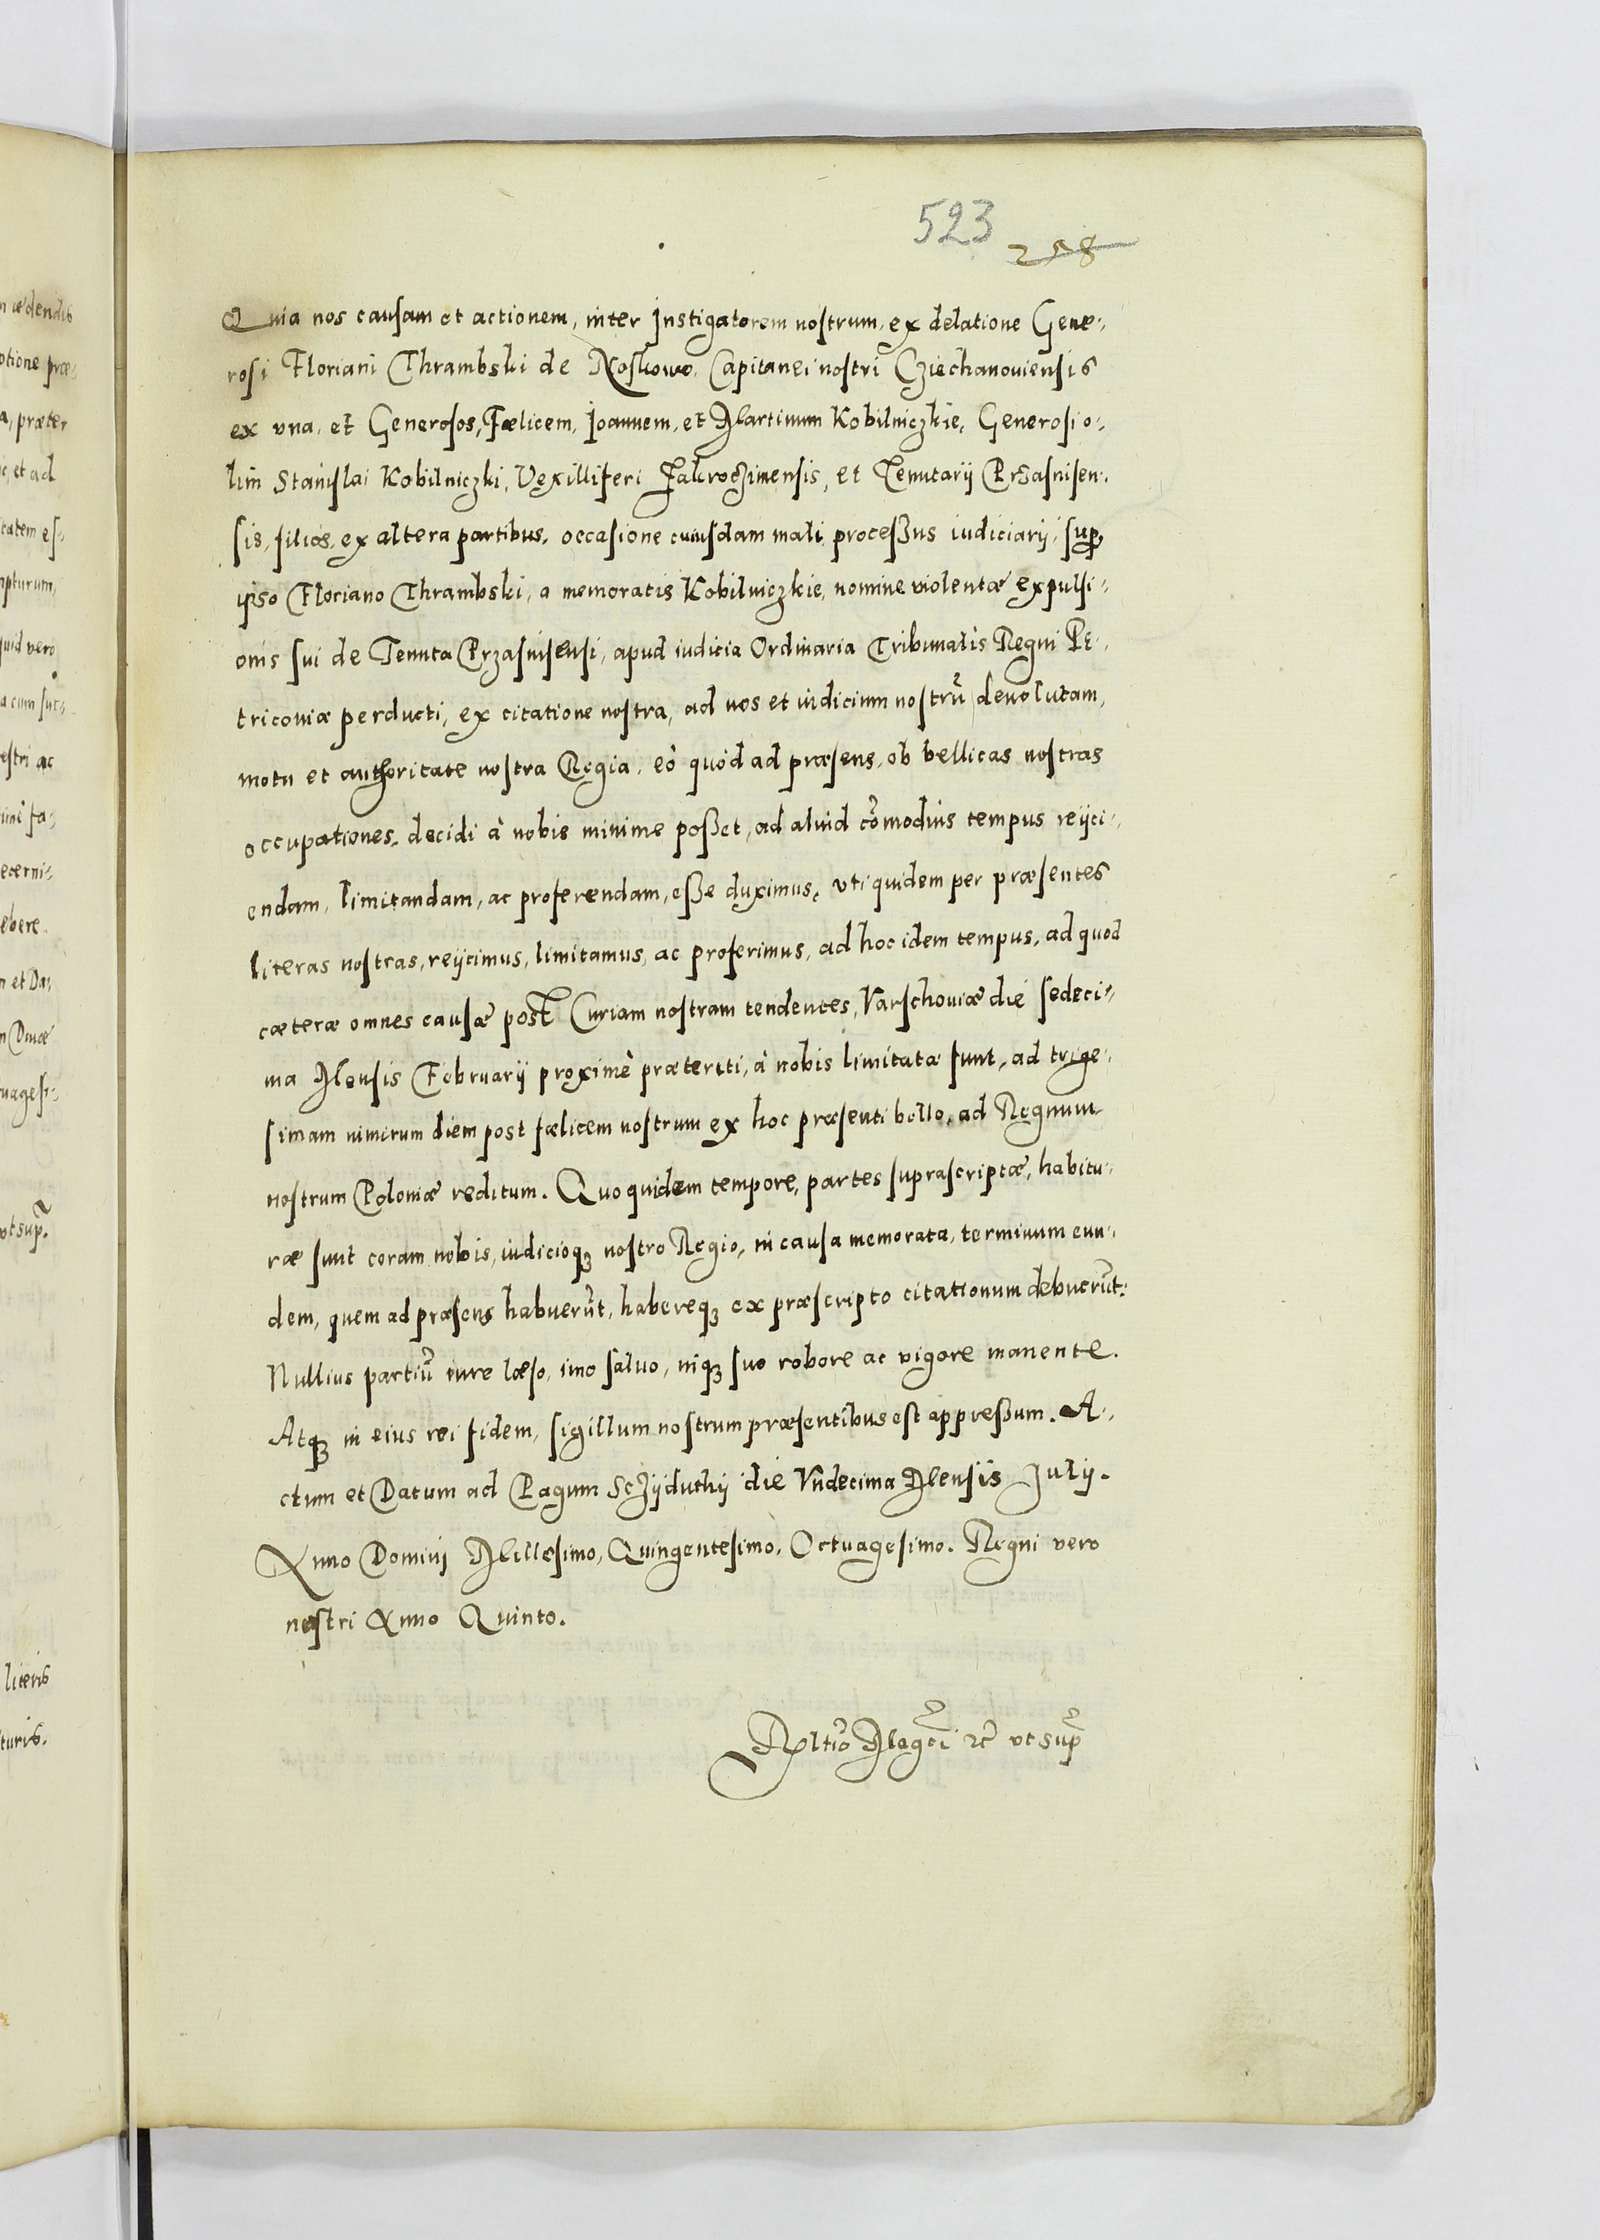 523
258
Quia nos causam et actionem, inter Instigatorem nostrum, ex delatione Gene-
rosi Floriani Thrambski de Noskowo, Capitanei nostri Cziechanoviensis
ex vna, et Generosos, Fælicem, Ioannem, et Martinum Kobilniczkie, Generosi o-
lim Stanislai Kobilniczki, Vexilliferi Zakroczimensis, et Tenutarij Przasnisen-
sis, filios, ex altera partibus, occasione cuiusdam mali processus iudiciarij, sup
ipso Floriano Thrambski, a memoratis Kobilniczkie, nomine violentæ expulsi-
onis sui de Tenuta Przasnisensi, apud iudicia Ordinaria Tribunalis Regni Pe-
tricouiæ perducti, ex citatione nostra, ad nos et iudicium nostrũ deuolutam,
motu et authoritate nostra Regia, eò quòd ad præsens, ob bellicas nostras
occupationes, decidi à nobis minime posset, ad aliud cõmodius tempus reijci-
endam, limitandam, ac proferendam, esse duximus, vti quidem per præsentes
literas nostras, reijcimus, limitamus, ac proferimus, ad hoc idem tempus, ad quod
cæteræ omnes causæ post Curiam nostram tendentes, Varschouiæ die sedeci-
ma Mensis Februarij proximè præteriti, à nobis limitatæ sunt, ad trige-
simam nimirum diem post fælicem nostrum ex hoc præsenti bello, ad Regnum
nostrum Poloniæ reditum. Quo quidem tempore, partes suprascriptæ, habitu-
ræ sunt coram nobis, iudicioq3 nostro Regio, in causa memorata, terminum eun-
dem, quem ad præsens habuerũt, habereq3 ex præscripto citationum debuerũt:
Nullius partiũ iure læso, imo saluo, inq3 suo robore ac vigore manente.
Atq3 in eius rei fidem, sigillum nostrum præsentibus est appressum. A-
ctum et Datum ad Pagum Sczijduthij die Vndecima Mensis Julij.
Anno Domini Millesimo, Quingentesimo, Octuagesimo. Regni vero
nostri Anno Quinto.